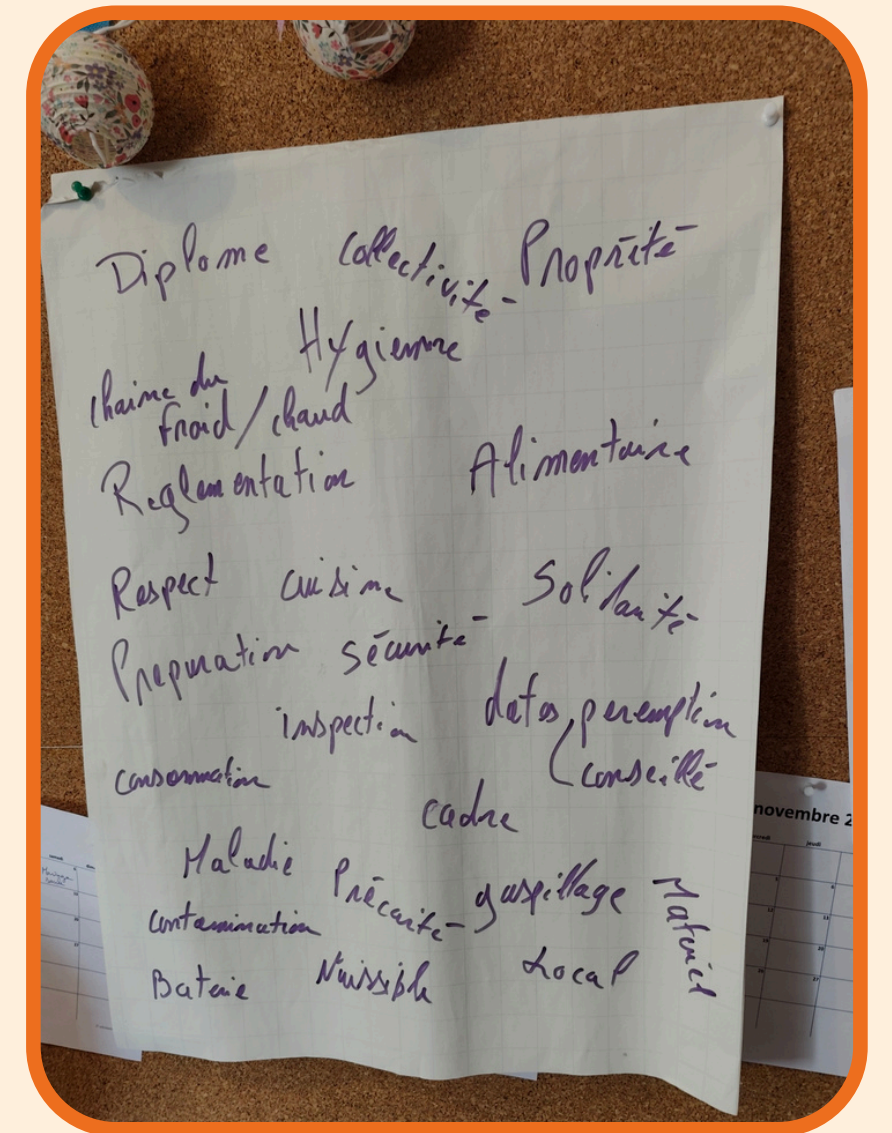 Diplome collectivité Propriété
Hygienne
chaine du
froid / chaud
Reglementation Alimentaire
Respect cuisine Solidarité
Preparation sécurité
inspection dates peremption
conseillé
consommation
cadre
Maladie Précarité gaspillage Materiel
contamination
Baterie Nuissible Local
novembre 2
jeudi